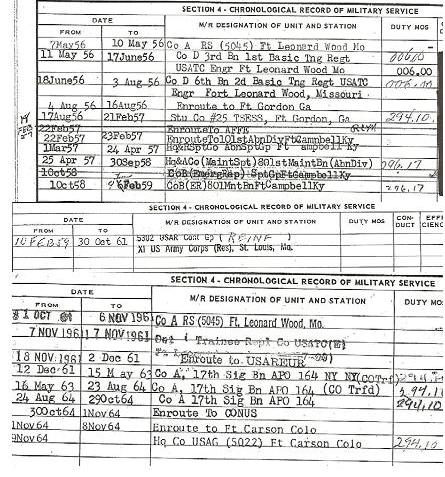 SECTION 4 - CHRONOLOGICAL RECORD OF MILITARY SERVICE
DATE
M/R DESIGNATION OF UNIT AND STATION
DUTY MOS
FROM TO
7May56 10 May 56 Co A RS (5045) Ft Leonard Wood Mo
11 May 56 17June56 Co D 3rd Bn 1st Basic Tng Regt 006.00
USATC Engr Ft Leonard Wood Mo 006.00
18June56 3 Aug 56 Co D 6th Bn 2d Basic Tng Regt USATC 006.00
Engr Fort Leonard Wood, Missouri
4 Aug 56 16Aug56 Enroute to Ft Gordon Ga
17Aug56 21Feb57 Stu Co #25 TSESS, Ft Gordon, Ga 294.10
22Feb57 EnrouteTo AFFE
22Feb57 23Feb57 EnrouteTo101stAbnDivFtCampbellKy
1Mar57 24 Apr 57 Hq&SptGp AbnSptGp Ft CampbellKy
25 Apr 57 30Sep58 Hq&ACo(MaintSpt)801stMaintBn(AbnDiv) 296.17
1Oct58 CoB(EmergRep) SptGpFtCampbellKy
1Oct58 Feb59 CoB(ER)801MntBnFtCampbellKy 296.17
SECTION 4 - CHRONOLOGICAL RECORD OF MILITARY SERVICE
DATE
M/R DESIGNATION OF UNIT AND STATION
DUTY MOS
CON-DUCT
FROM TO
10 FEB 59 30 Oct 61 5302 USAR Cont Gp (REINF)
XI US Army Corps (Res), St. Louis, Mo.
SECTION 4 - CHRONOLOGICAL RECORD OF MILITARY SERVICE
DATE
M/R DESIGNATION OF UNIT AND STATION
DUTY MOS
FROM TO
31 OCT 61 6 NOV 1961 Co A RS (5045) Ft. Leonard Wood, Mo.
7 NOV 1961 17 NOV 1961 Det 1 Trainee Repl Co USATC(E)
18 NOV 1961 2 Dec 61 Enroute to USAREUR
12 Dec 61 15 May 63 Co A, 17th Sig Bn APO 164 NY NY (COTrf)
16 May 63 23 Aug 64 Co A, 17th Sig Bn APO 164 (CO Trfd) 294.10
24 Aug 64 29Oct64 Co A 17th Sig Bn APO 164 294.10
30Oct64 1Nov64 Enroute To CONUS
1Nov64 8Nov64 Enroute to Ft Carson Colo
9Nov64 Hq Co USAG (5022) Ft Carson Colo 294.10